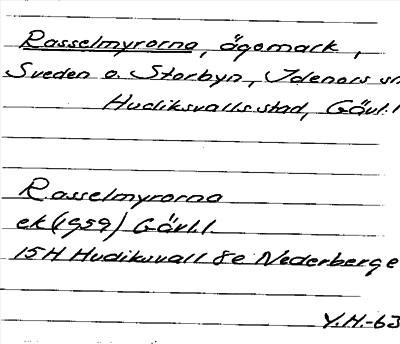 Rasselmyrorna, ägomark,
Sveden o. Storbyn, Idenors sn
Hudiksvalls stad, Gävl.l
Rasselmyrorna
ek (1959) Gävl.l.
15H Hudiksvall 8e Nederberge
Y.H.-63